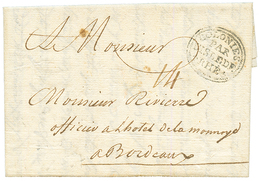 A Monsieur
COLONIES
PAR
ISLE DE
RHE
14
Monsieur Rivierre
officier a Lhotel de la monnoye
a Bordeaux